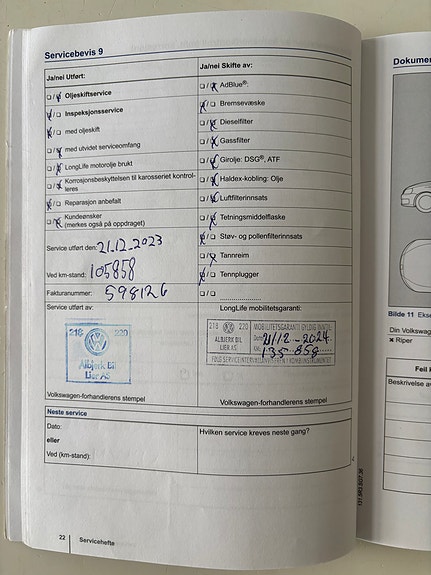 Servicebevis 9
Ja/nei Utført:
Ja/nei Skifte av:
Oljeskiftservice
AdBlue®.
Inspeksjonsservice
Bremsevæske
med oljeskift
Dieselfilter
med utvidet serviceomfang
Gassfilter
LongLife motorolje brukt
Girolje: DSG®, ATF
Korrosjonsbeskyttelsen til karosseriet kontrol-
leres
Haldex-kobling: Olje
Reparasjon anbefalt
Luftfilterinnsats
Kundeønsker
(merkes også på oppdraget)
Tetningsmiddelflaske
Støv- og pollenfilterinnsats
Tannreim
Tennplugger
Service utført den: 21.12-2023
Ved km-stand: 105858
Fakturanummer: 598126
Service utført av:
LongLife mobilitetsgaranti:
218 220
Albjerk Bil
Lier AS
218 220
ALBJERK BIL
LIER AS
MOBILITETSGARANTI GYLDIG INNTIL
21/12-2024
135.858
Volkswagen-forhandlerens stempel
Volkswagen-forhandlerens stempel
Neste service
Dato:
eller
Ved (km-stand):
Hvilken service kreves neste gang?
22 Servicehefte
Dokumen
Bilde 11 Ekse
Din Volkswag
× Riper
Feil k
Beskrivelse av